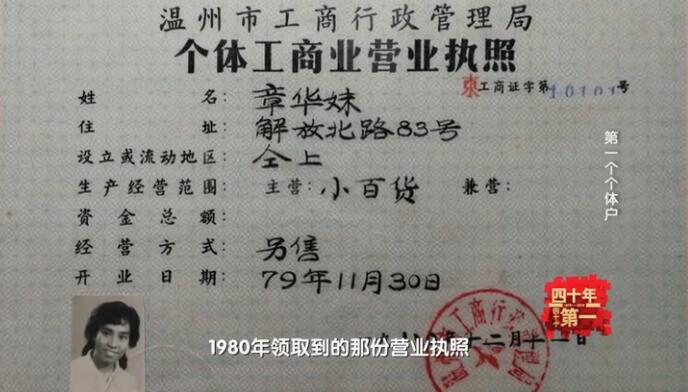 温州市工商行政管理局
个体工商业营业执照
東工商证字第10101号
姓名：章华妹
住址：解放北路83号
设立或流动地区：仝上
生产经营范围：主营：小百货 兼营：
资金总额：
经营方式：另售
开业日期：79年11月30日
工商行
十二月十一日
第一个个体户
四十年
四十个
第一
1980年领取到的那份营业执照